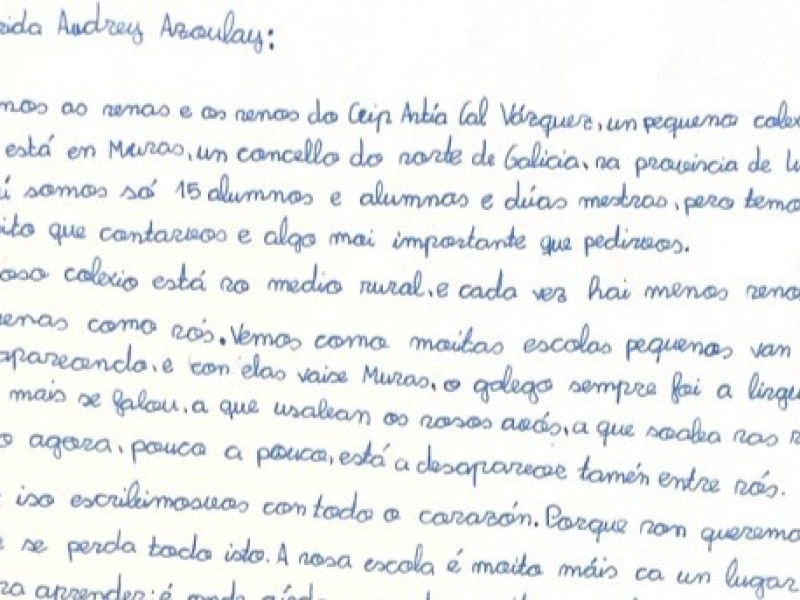 rida Audrey Azoulay:
mos as nenas e os nenos do Ceip Antía Cal Vázquez, un pequeno colex
está en Muras, un concello do norte de Galicia, na provincia de Lu
í somos só 15 alumnos e alumnas e dúas mestras, pero temo
ito que contarvos e algo moi importante que pedirvos.
oso colexio está no medio rural, e cada vez hai menos neno
nenas como nós. Vemos como moitas escolas pequenas van
aparecendo, e con elas vaise Muras, o galego sempre foi a lingu
mais se falou, a que usaban os nosos avós, a que soaba nas r
o agora, pouco a pouco, está a desaparecer tamén entre nós.
iso escribimosvos con todo o corazón. Porque non queremo
e se perda todo isto. A nosa escola é moito máis ca un lugar
ra aprender: é onde aínda